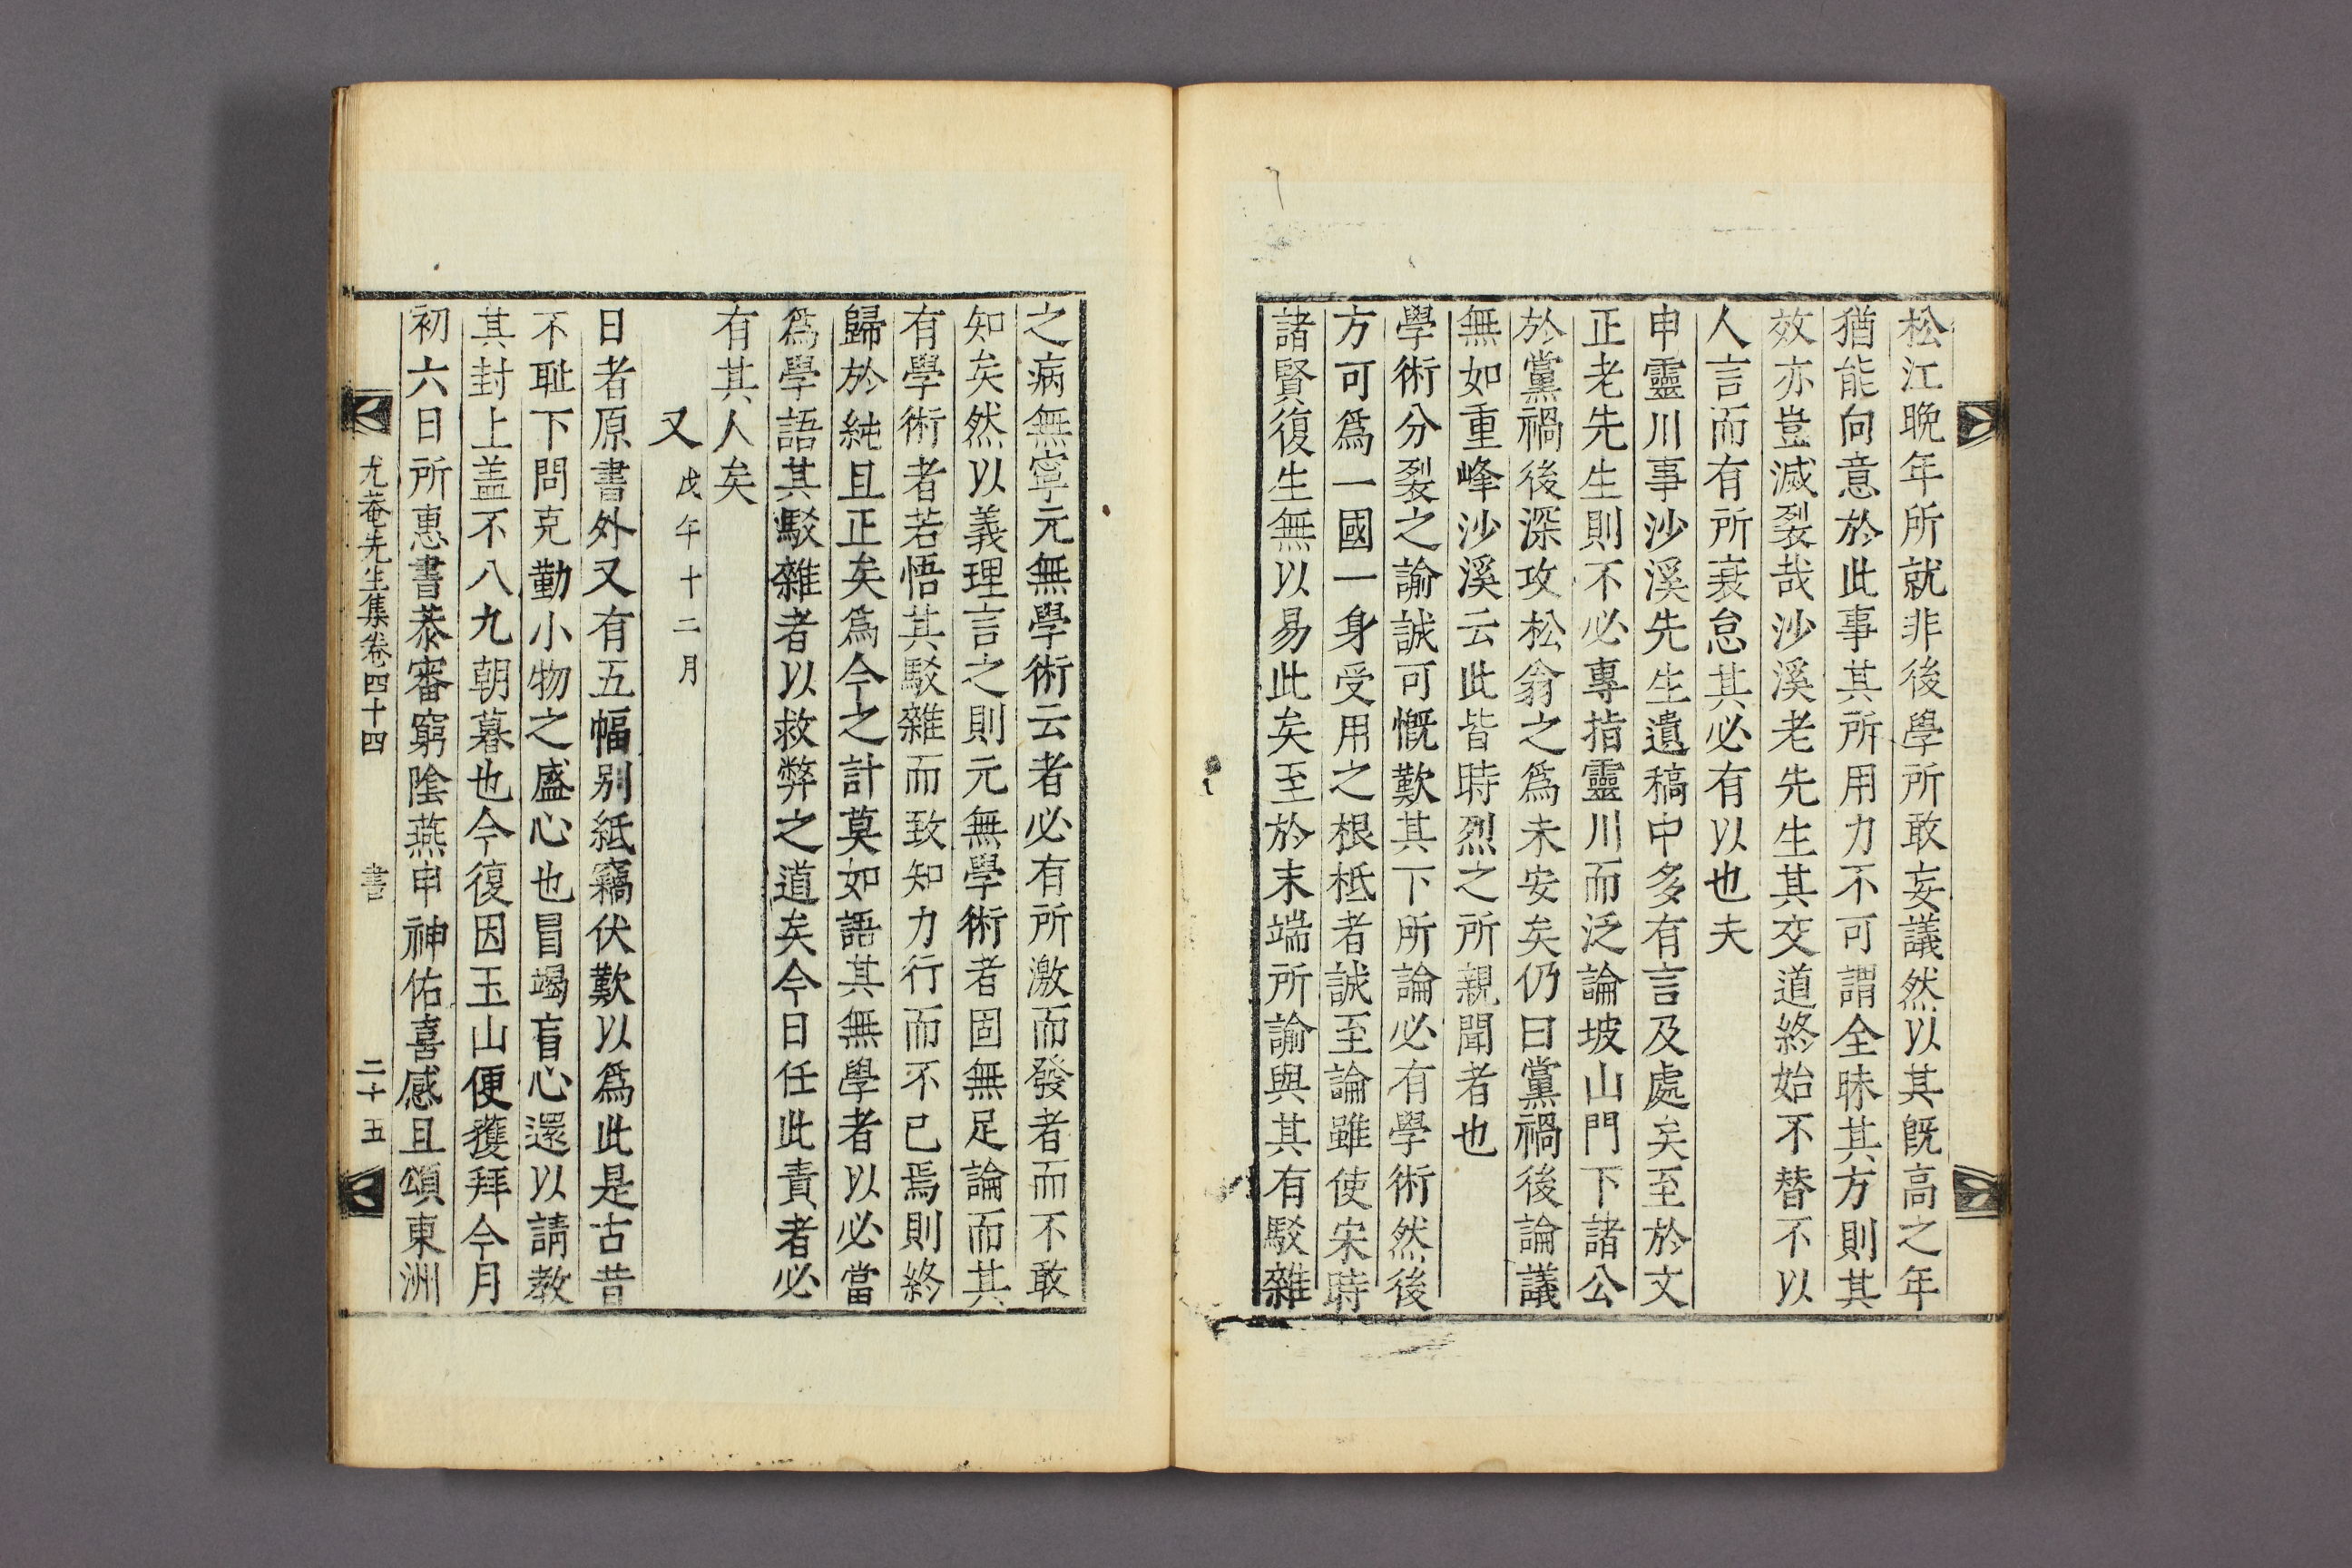 松江晩年所就非後學所敢妄議然以其旣高之年
猶能向意於此事其所用力不可謂全昧其方則其
效亦豈滅裂哉沙溪老先生其交道終始不替不以
人言而有所衰怠其必有以也夫
申靈川事沙溪先生遺稿中多有言及處矣至於文
正老先生則不必專指靈川而泛論坡山門下諸公
於黨禍後深攻松翁之爲未安矣仍曰黨禍後論議
無如重峰沙溪云此皆時烈之所親聞者也
學術分裂之諭誠可慨歎其下所論必有學術然後
方可爲一國一身受用之根柢者誠至論雖使宋時
諸賢復生無以易此矣至於末端所諭與其有駁雜
之病無寧元無學術云者必有所激而發者而不敢
知矣然以義理言之則元無學術者固無足論而其
有學術者若悟其駁雜而致知力行而不已焉則終
歸於純且正矣爲今之計莫如語其無學者以必當
爲學語其駁雜者以救弊之道矣今日任此責者必
有其人矣
又 戊午十二月
日者原書外又有五幅别紙竊伏歎以爲此是古昔
不耻下問克勤小物之盛心也冒竭盲心還以請教
其封上盖不八九朝暮也今復因玉山便獲拜今月
初六日所惠書恭審窮陰燕申神佑喜感且頌東洲
尤菴先生集卷四十四 書 二十五